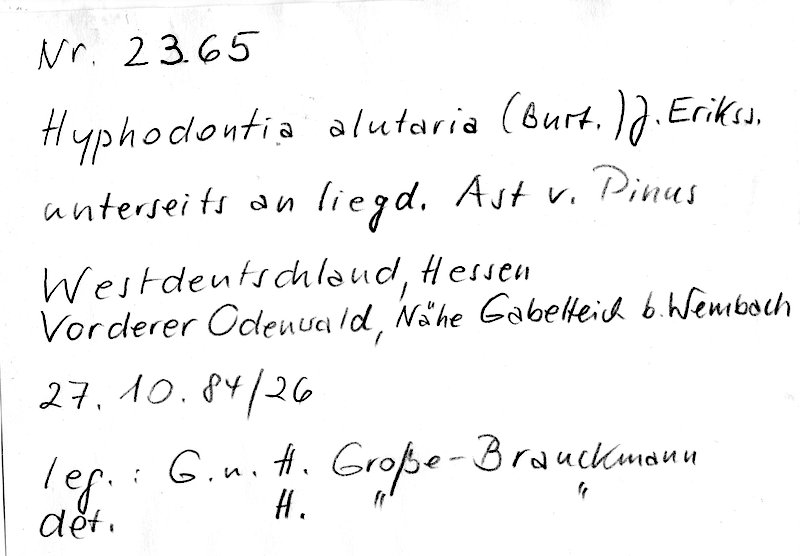 Nr. 2365
Hyphodontia alutaria (Burt.) J. Erikss.
unterseits an liegd. Ast v. Pinus
Westdeutschland, Hessen
Vorderer Odenwald, Nähe Gabelteich b. Wembach
27. 10. 84/26
leg.: G. u. H. Große-Brauckmann
det. H. " "